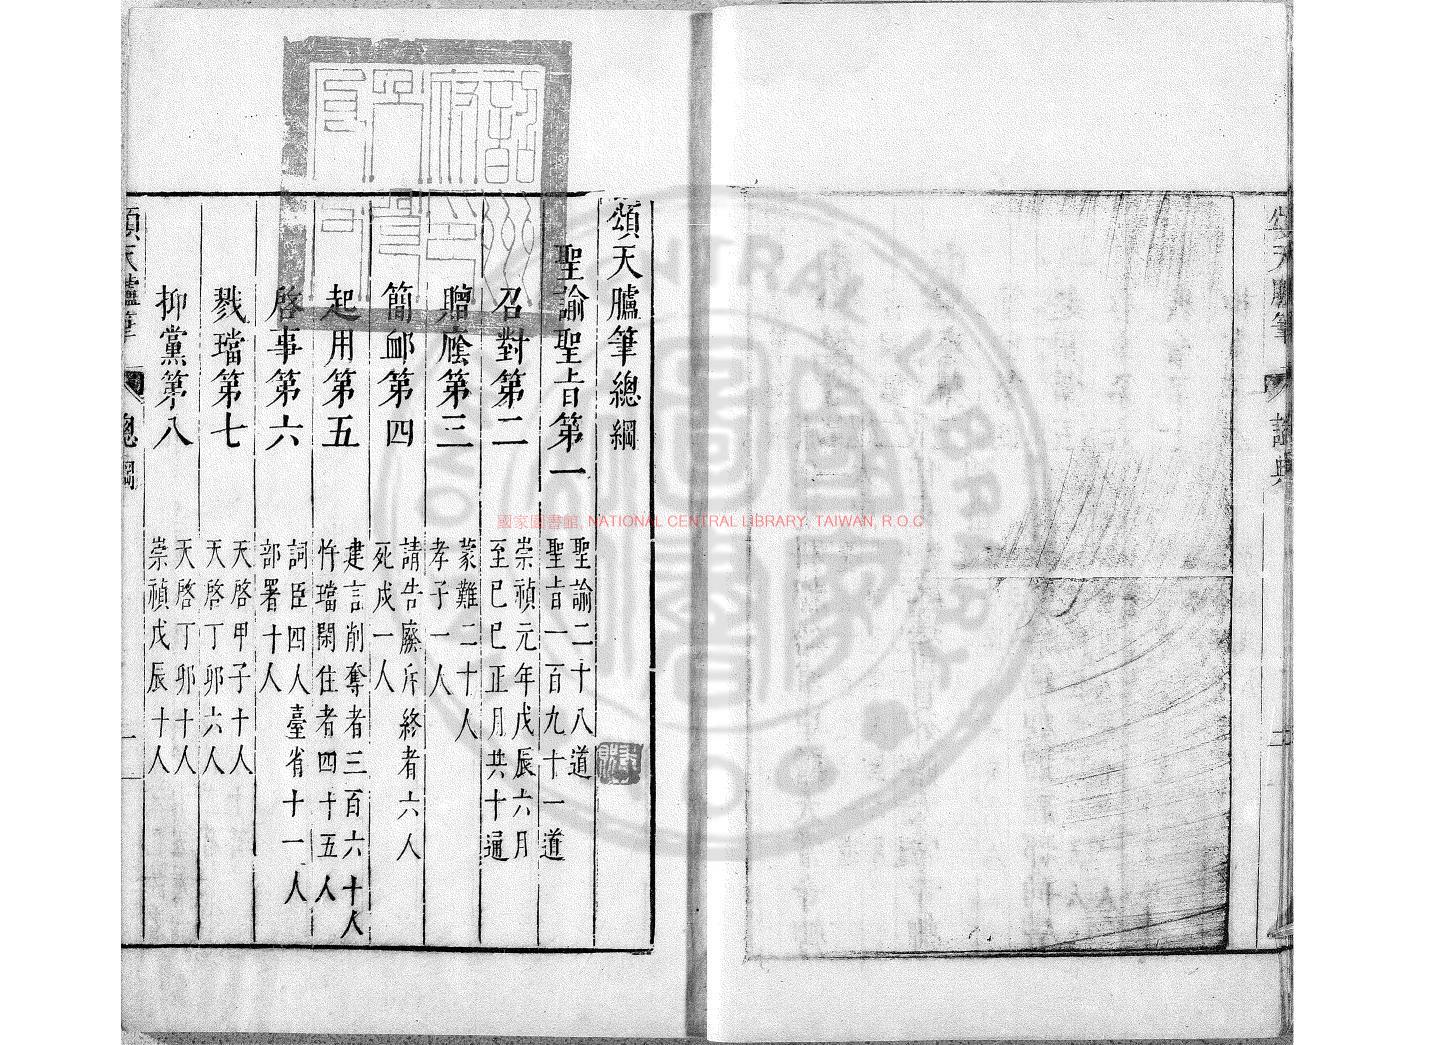 頌天臚筆總綱
聖諭聖旨第一
聖諭二十八道
聖旨一百九十一道
召對第二
崇禎元年戊辰六月
至己巳正月共十通
贈廕第三
蒙難二十人
孝子一人
簡卹第四
請告廢斥終者六人
死戍一人
起用第五
建言削奪者三百六十人
忤璫閑住者四十五人
啓事第六
詞臣四人臺省十一人
部署十人
戮璫第七
天啓甲子十人
天啓丁卯六人
抑黨第八
天啓丁卯十人
崇禎戊辰十人
頌天臚筆
總綱
一
國家圖書館, NATIONAL CENTRAL LIBRARY, TAIWAN, R.O.C